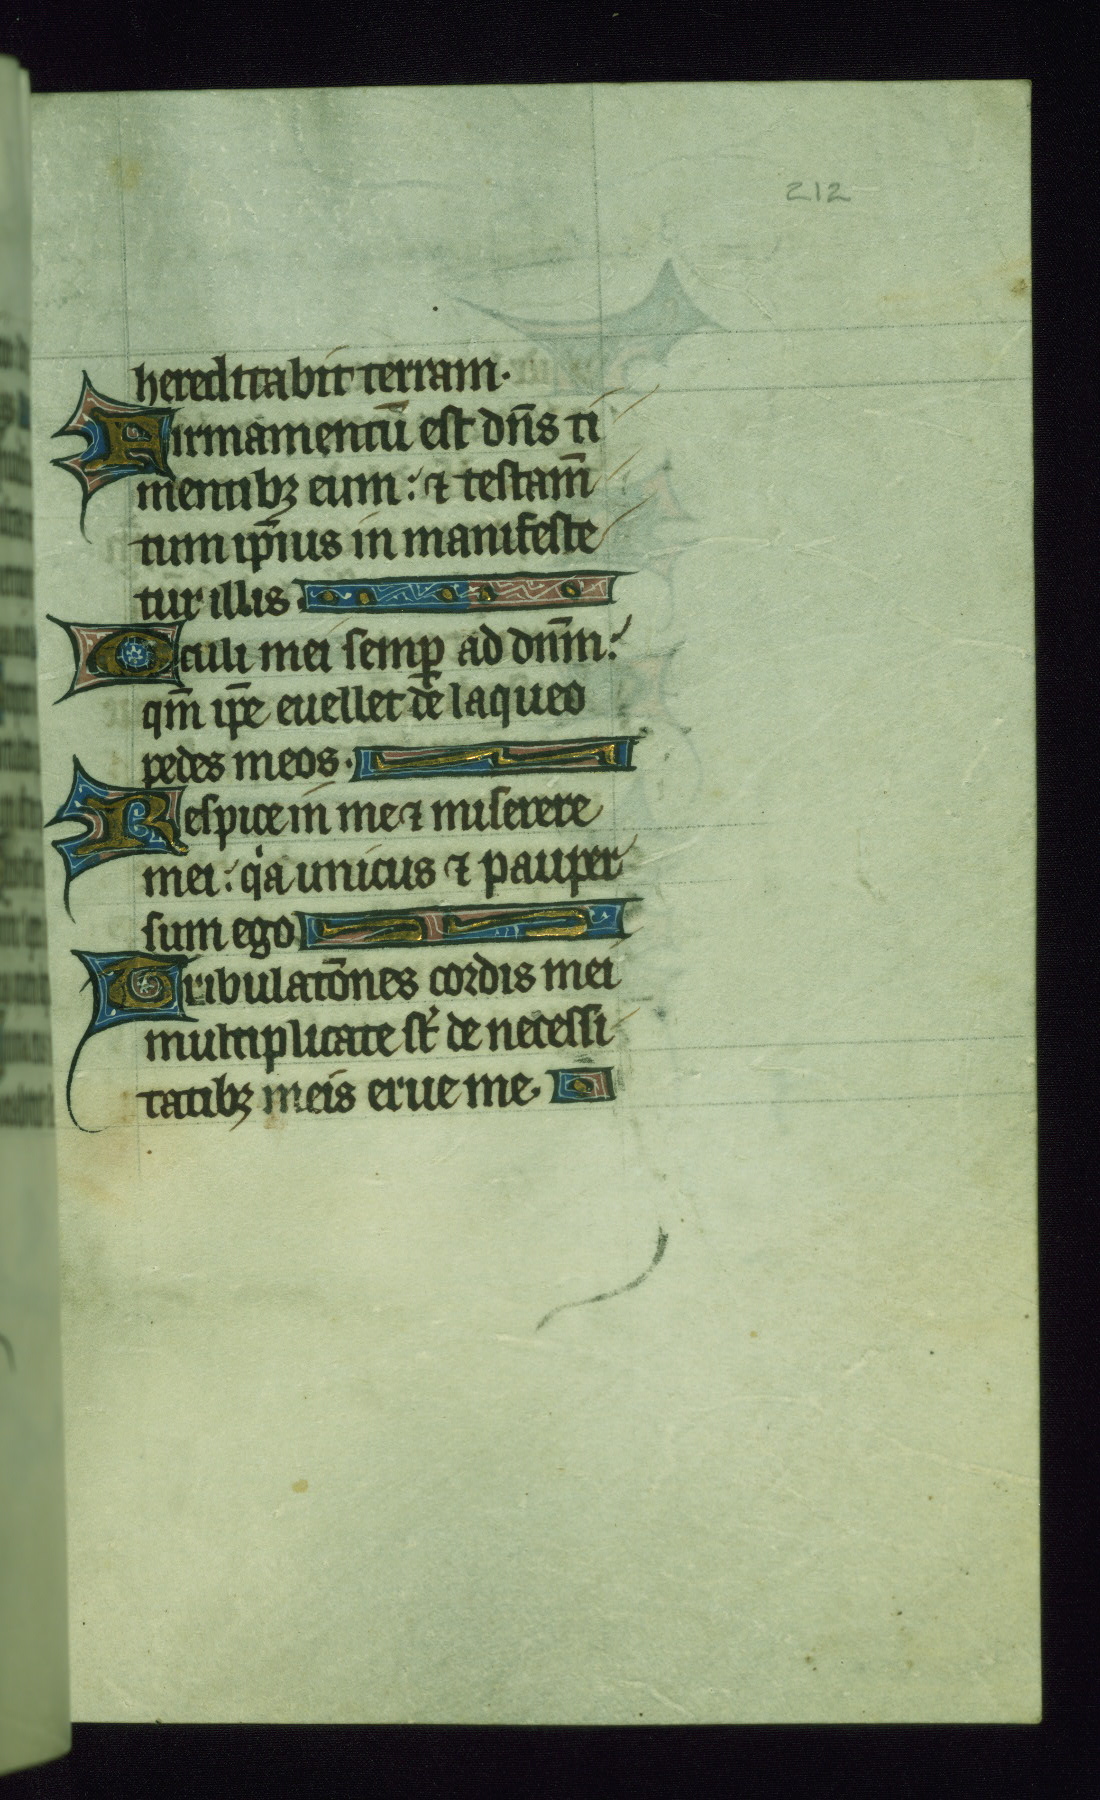 212
hereditabit terram.
Firmamentū est dn̄s ti
mentibꝫ eum: ⁊ testam̄
tum ip̄ius in manifeste
tur illis
Oculi mei semꝑ ad dnm̄:
qm̄ ip̄e euellet de laqueo
pedes meos.
Respice in me ⁊ miserere
mei: qͥa unicus ⁊ pauper
sum ego
Tribulatōnes cordis mei
multiplicate st̄ de necessi
tatibꝫ meis erue me.